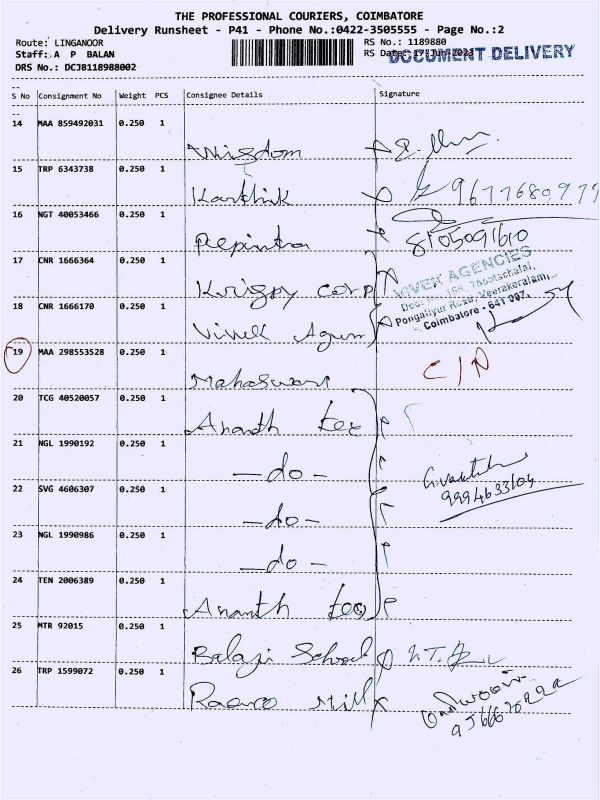 THE PROFESSIONAL COURIERS, COIMBATORE
Delivery Runsheet - P41 - Phone No.:0422-3505555 - Page No.:2
Route: LINGANOOR
RS No.: 1189880
Staff: A P BALAN
RS Date: 17-Jun-2023
DOCUMENT DELIVERY
DRS No.: DCJB118988002
--
S No Consignment No Weight PCS Consignee Details Signature
--
14 MAA 859492031 0.250 1
Wisdom
15 TRP 6343738 0.250 1
Karthik 9677680979
16 NGT 40053466 0.250 1
Pepintra 8105091610
17 CNR 1666364 0.250 1
Krispy corp
VIVEK AGENCIES
Door No. 168, Thootachalai,
Pongaliyur Road, Veerakeralam,
Coimbatore - 641 007.
18 CNR 1666170 0.250 1
Vivek Agen
19 MAA 298553528 0.250 1
Mahaswari
20 TCG 40520057 0.250 1
Ananth tex
21 NGL 1990192 0.250 1
- do -
22 SVG 4606307 0.250 1
- do -
9994633104
23 NGL 1990986 0.250 1
- do -
24 TEN 2006389 0.250 1
Ananth tex
25 MTR 92015 0.250 1
Balaji School
26 TRP 1599072 0.250 1
Mill